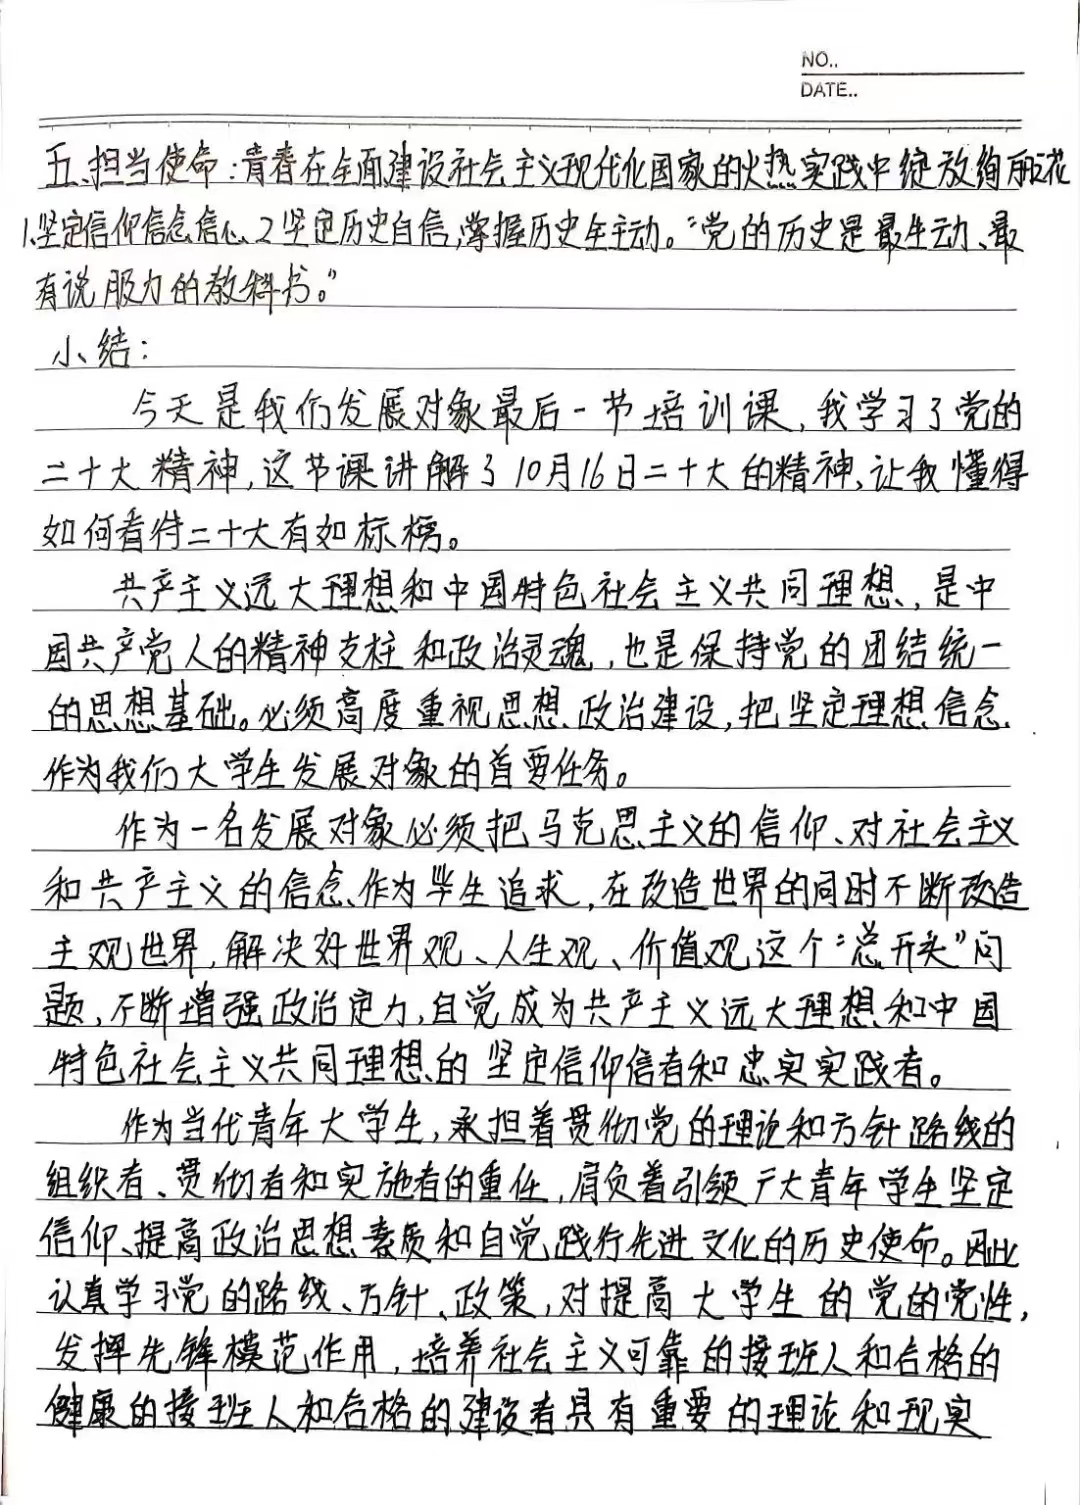 NO..
DATE..
五、担当使命：青春在全面建设社会主义现代化国家的火热实践中绽放绚丽花
1、坚定信仰信念信心、2坚定历史自信，掌握历史全主动。“党的历史是最生动、最
有说服力的教科书。”
小结：
今天是我们发展对象最后一节培训课，我学习了党的
二十大精神，这节课讲解了10月16日二十大的精神，让我懂得
如何看待二十大有如标榜。
共产主义远大理想和中国特色社会主义共同理想，是中
国共产党人的精神支柱和政治灵魂，也是保持党的团结统一
的思想基础。必须高度重视思想政治建设，把坚定理想信念
作为我们大学生发展对象的首要任务。
作为一名发展对象必须把马克思主义的信仰、对社会主义
和共产主义的信念作为毕生追求，在改造世界的同时不断改造
主观世界，解决好世界观、人生观、价值观这个“总开头”问
题，不断增强政治定力，自觉成为共产主义远大理想和中国
特色社会主义共同理想的坚定信仰信者和忠实实践者。
作为当代青年大学生，承担着贯彻党的理论和方针路线的
组织者、贯彻者和实施者的重任，肩负着引领广大青年学生坚定
信仰、提高政治思想素质和自觉践行先进文化的历史使命。因此
认真学习党的路线、方针、政策，对提高大学生的党的党性，
发挥先锋模范作用，培养社会主义可靠的接班人和合格的
健康的接班人和合格的建设者具有重要的理论和现实